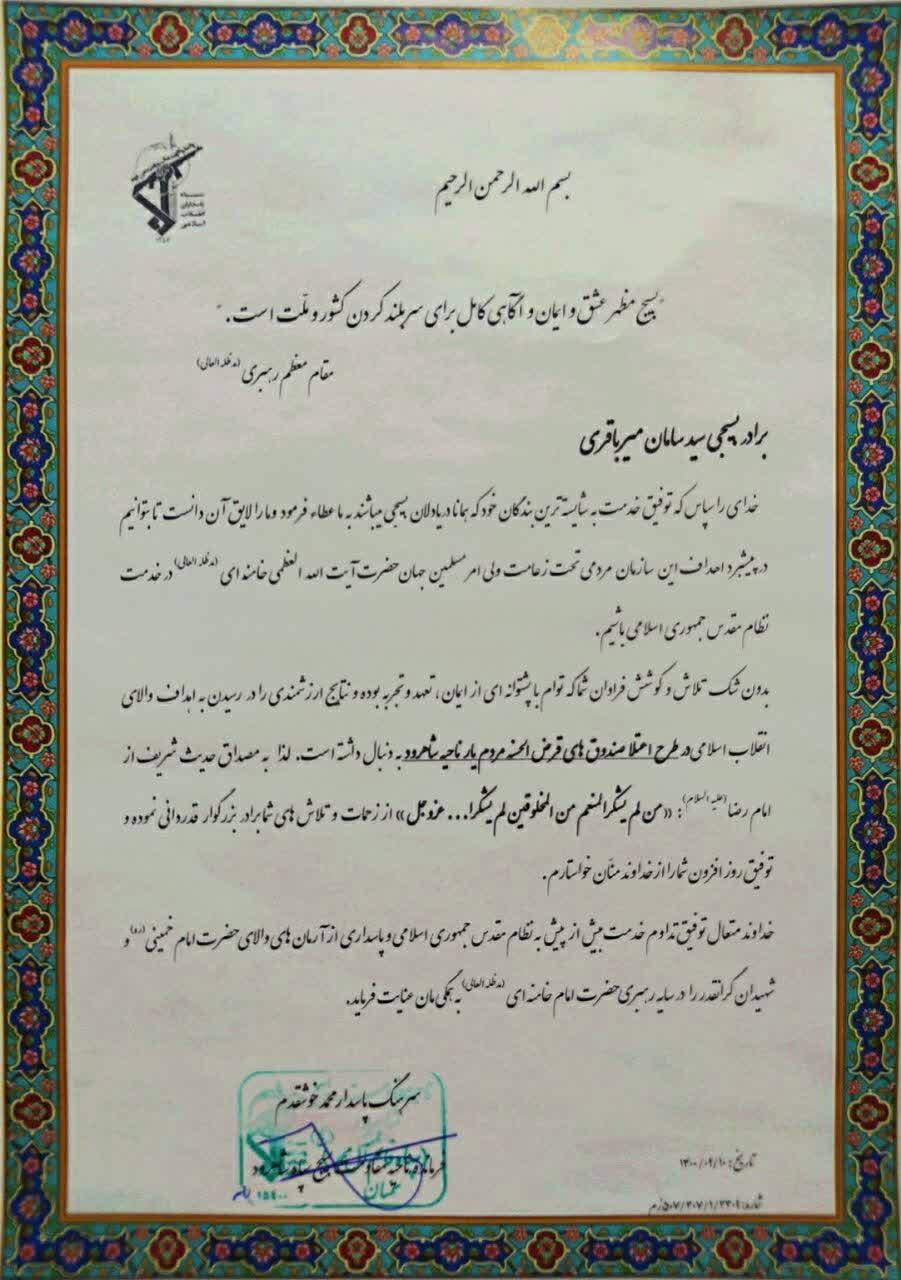 سپاه
پاسداران
انقلاب
اسلامی
بسم الله الرحمن الرحیم
"بسیج مظهر عشق و ایمان و آگاهی کامل برای سربلند کردن کشور و ملّت است."
مقام معظم رهبری (مدظله العالی)
برادر بسیجی سید سامان میرباقری
خدای را سپاس که توفیق خدمت به شایسته ترین بندگان خود که همانا دریادلان بسیجی میباشند به ما عطاء فرمود و ما را لایق آن دانست تا بتوانیم
در پیشبرد اهداف این سازمان مردمی تحت زعامت ولی امر مسلمین جهان حضرت آیت الله العظمی خامنه ای (مدظله العالی) در خدمت
نظام مقدس جمهوری اسلامی باشیم.
بدون شک تلاش و کوشش فراوان شما که توام با پشتوانه ای از ایمان، تعهد و تجربه بوده و نتایج ارزشمندی را در رسیدن به اهداف والای
انقلاب اسلامی در طرح اعتلا صندوق های قرض الحسنه مردم یار ناحیه شاهرود به دنبال داشته است. لذا به مصداق حدیث شریف از
امام رضا (علیه السلام): «من لم یشکر المنعم من المخلوقین لم یشکرا... عزوجل» از زحمات و تلاش های شما برادر بزرگوار قدردانی نموده و
توفیق روز افزون شما را از خداوند منّان خواستارم.
خداوند متعال توفیق تداوم خدمت بیش از پیش به نظام مقدس جمهوری اسلامی و پاسداری از آرمان های والای حضرت امام خمینی (ره) و
شهیدان گرانقدر را در سایه رهبری حضرت امام خامنه ای (مدظله العالی) به همگی مان عنایت فرماید.
سرهنگ پاسدار محمد خوشقدم
فرمانده ناحیه مقاومت بسیج سپاه شاهرود
تاریخ:
شماره: